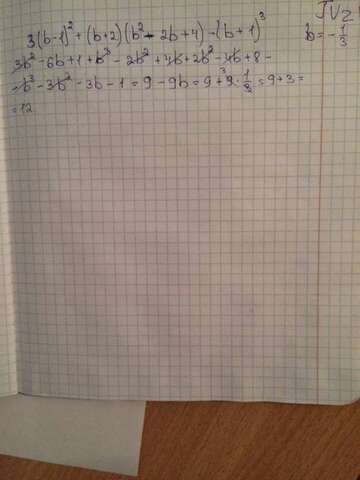 №2
3(b-1)² + (b+2)(b² - 2b + 4) - (b+1)³ b = -1/3
3b² - 6b + 1 + b³ - 2b² + 4b + 2b² - 4b + 8 -
- b³ - 3b² - 3b - 1 = 9 - 9b = 9 + 9 · 1/3 = 9 + 3 =
= 12